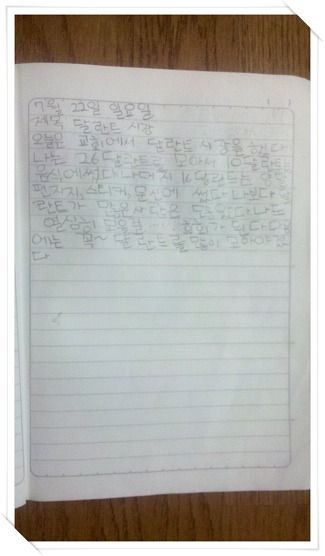 7월 22일 일요일
제목 달란트 시장
오늘은 교회에서 달란트 시장을 했다
나는 26달란트를 모아서 10달란트는
음식에썼다나머지 16달란트는
편지지,스티커, 에 썼다 나보다 달
란트가 많은사람도 나는
열심히 후회가 된다다음
에는 꼭~ 달란트를많이 모아야겠
다